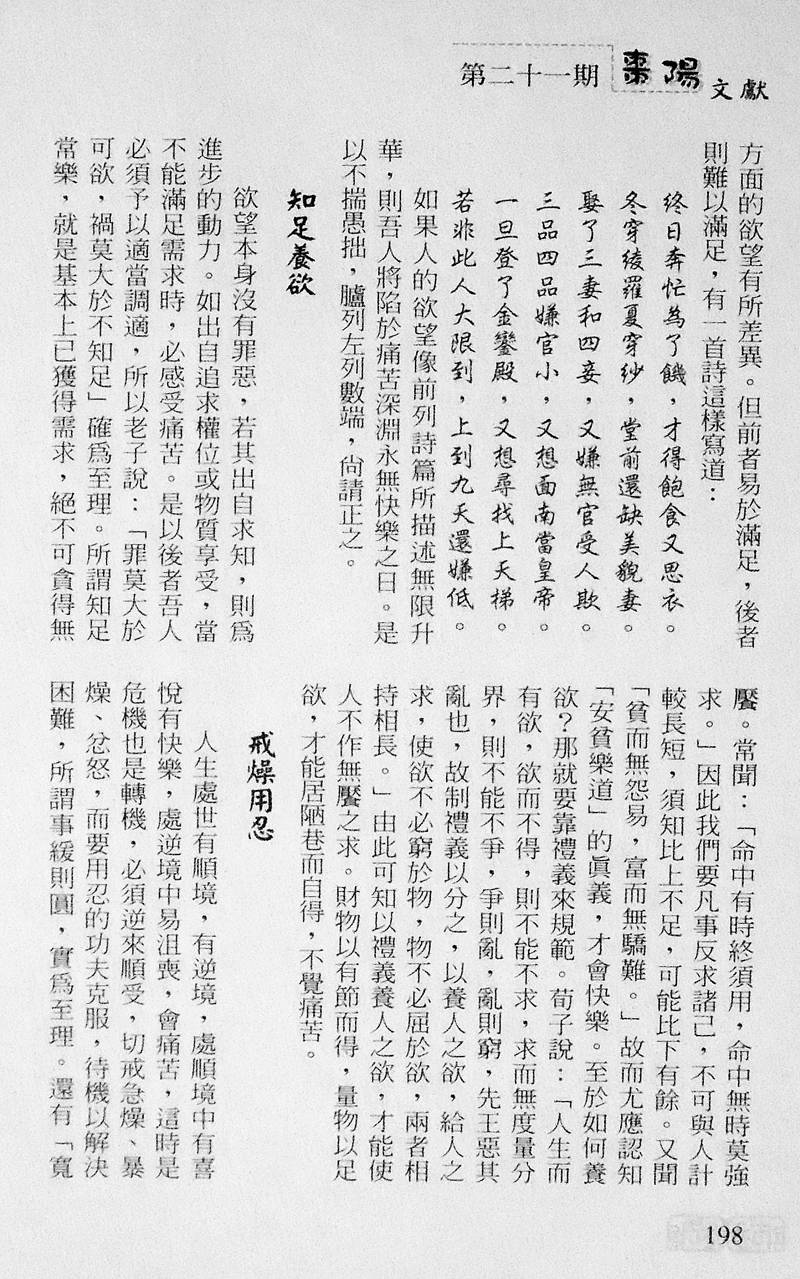 第二十一期 棗陽文獻
方面的欲望有所差異。但前者易於滿足，後者
則難以滿足，有一首詩這樣寫道：
終日奔忙為了饑，才得飽食又思衣。
冬穿綾羅夏穿紗，堂前還缺美貌妻。
娶了三妻和四妾，又嫌無官受人欺。
三品四品嫌官小，又想面南當皇帝。
一旦登了金鑾殿，又想尋找上天梯。
若非此人大限到，上到九天還嫌低。
如果人的欲望像前列詩篇所描述無限升
華，則吾人將陷於痛苦深淵永無快樂之日。是
以不揣愚拙，臚列左列數端，尙請正之。
知足養欲
欲望本身沒有罪惡，若其出自求知，則爲
進步的動力。如出自追求權位或物質享受，當
不能滿足需求時，必感受痛苦。是以後者吾人
必須予以適當調適，所以老子說：「罪莫大於
可欲，禍莫大於不知足」確爲至理。所謂知足
常樂，就是基本上已獲得需求，絕不可貪得無
饜。常聞：「命中有時終須用，命中無時莫強
求。」因此我們要凡事反求諸己，不可與人計
較長短，須知比上不足，可能比下有餘。又聞
「貧而無怨易，富而無驕難。」故而尤應認知
「安貧樂道」的眞義，才會快樂。至於如何養
欲？那就要靠禮義來規範。荀子說：「人生而
有欲，欲而不得，則不能不求，求而無度量分
界，則不能不爭，爭則亂，亂則窮，先王惡其
亂也，故制禮義以分之，以養人之欲，給人之
求，使欲不必窮於物，物不必屈於欲，兩者相
持相長。」由此可知以禮義養人之欲，才能使
人不作無饜之求。財物以有節而得，量物以足
欲，才能居陋巷而自得，不覺痛苦。
戒燥用忍
人生處世有順境，有逆境，處順境中有喜
悅有快樂，處逆境中易沮喪，會痛苦，這時是
危機也是轉機，必須逆來順受，切戒急燥、暴
燥、忿怒，而要用忍的功夫克服，待機以解決
困難，所謂事緩則圓，實爲至理。還有「寬
198